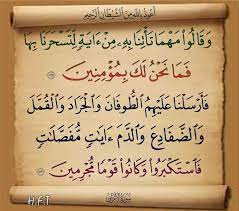 أعوذ بالله من الشيطان الرجيم
وَقَالُوا۟ مَهْمَا تَأْتِنَا بِهِۦ مِنْ ءَايَةٍ لِّتَسْحَرَنَا بِهَا
فَمَا نَحْنُ لَكَ بِمُؤْمِنِينَ
فَأَرْسَلْنَا عَلَيْهِمُ ٱلطُّوفَانَ وَٱلْجَرَادَ وَٱلْقُمَّلَ
وَٱلضَّفَادِعَ وَٱلدَّمَ ءَايَٰتٍ مُّفَصَّلَٰتٍ
فَٱسْتَكْبَرُوا۟ وَكَانُوا۟ قَوْمًا مُّجْرِمِينَ
H.F.T